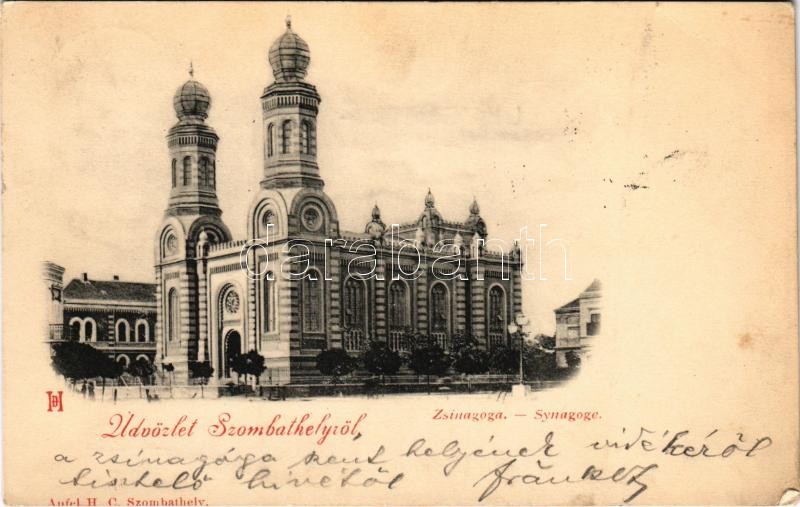 darabanth
Udvözlet Szombathelyröl,
Zsinagoga. — Synagoge.
a zsinagóga szent helyének vidékéről
tisztelő hivétől
Apfel H. C. Szombathely.